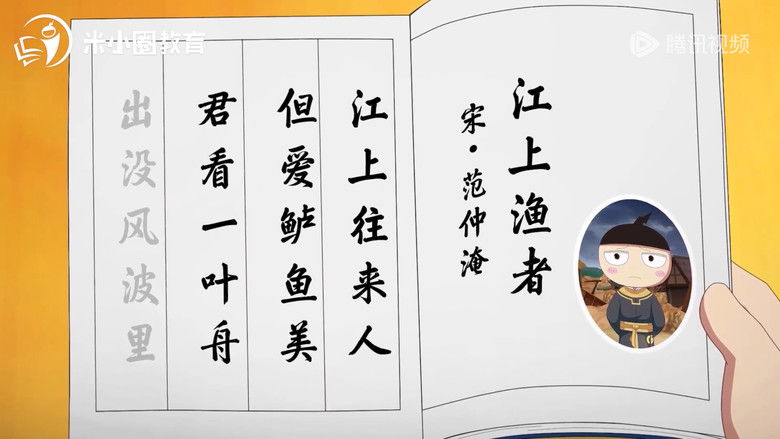 米小圈教育
腾讯视频
江上渔者
宋·范仲淹
江上往来人
但爱鲈鱼美
君看一叶舟
出没风波里